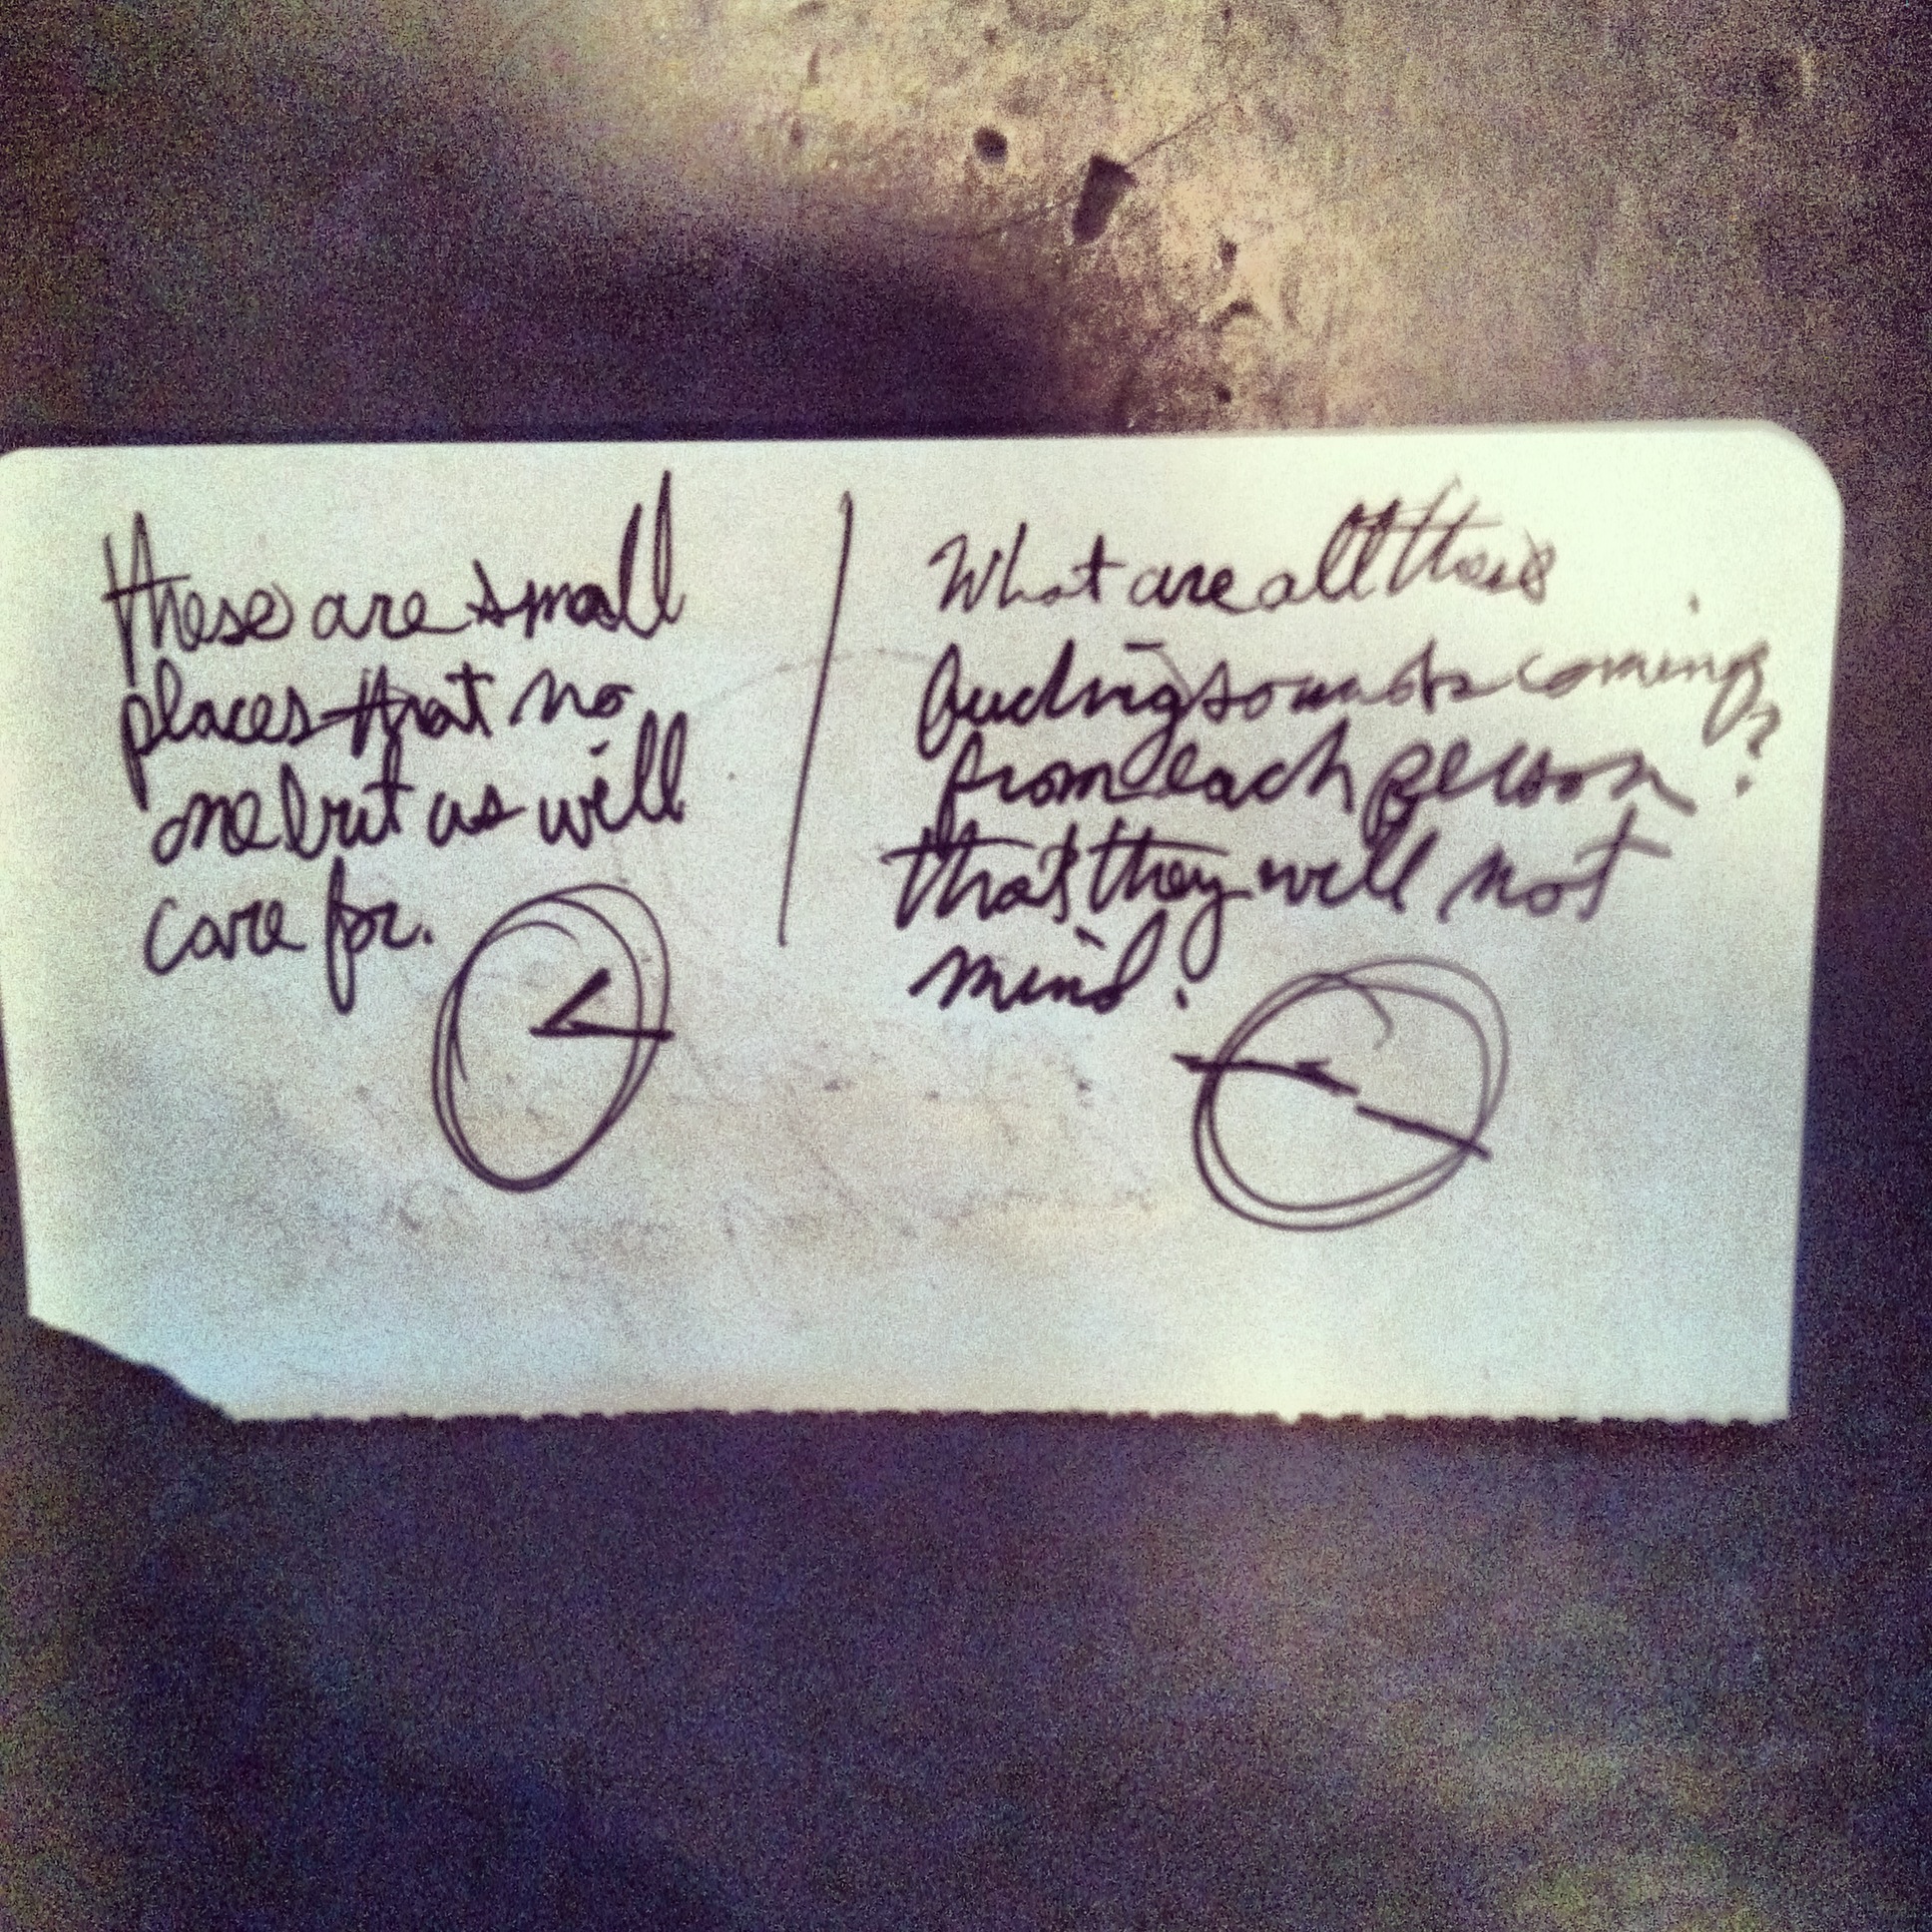 these are small
places that no
one but us will
care for.
What are all these
fucking sounds coming
from each person?
that they will not
mind.